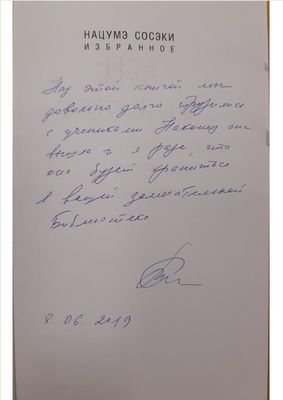 НАЦУМЭ СОСЭКИ
ИЗБРАННОЕ
Над этой книгой мы
довольно долго трудились
с учениками. Наконец она
вышла и я рад, что
она будет храниться
в вашей замечательной
Библиотеке
8.06.2019